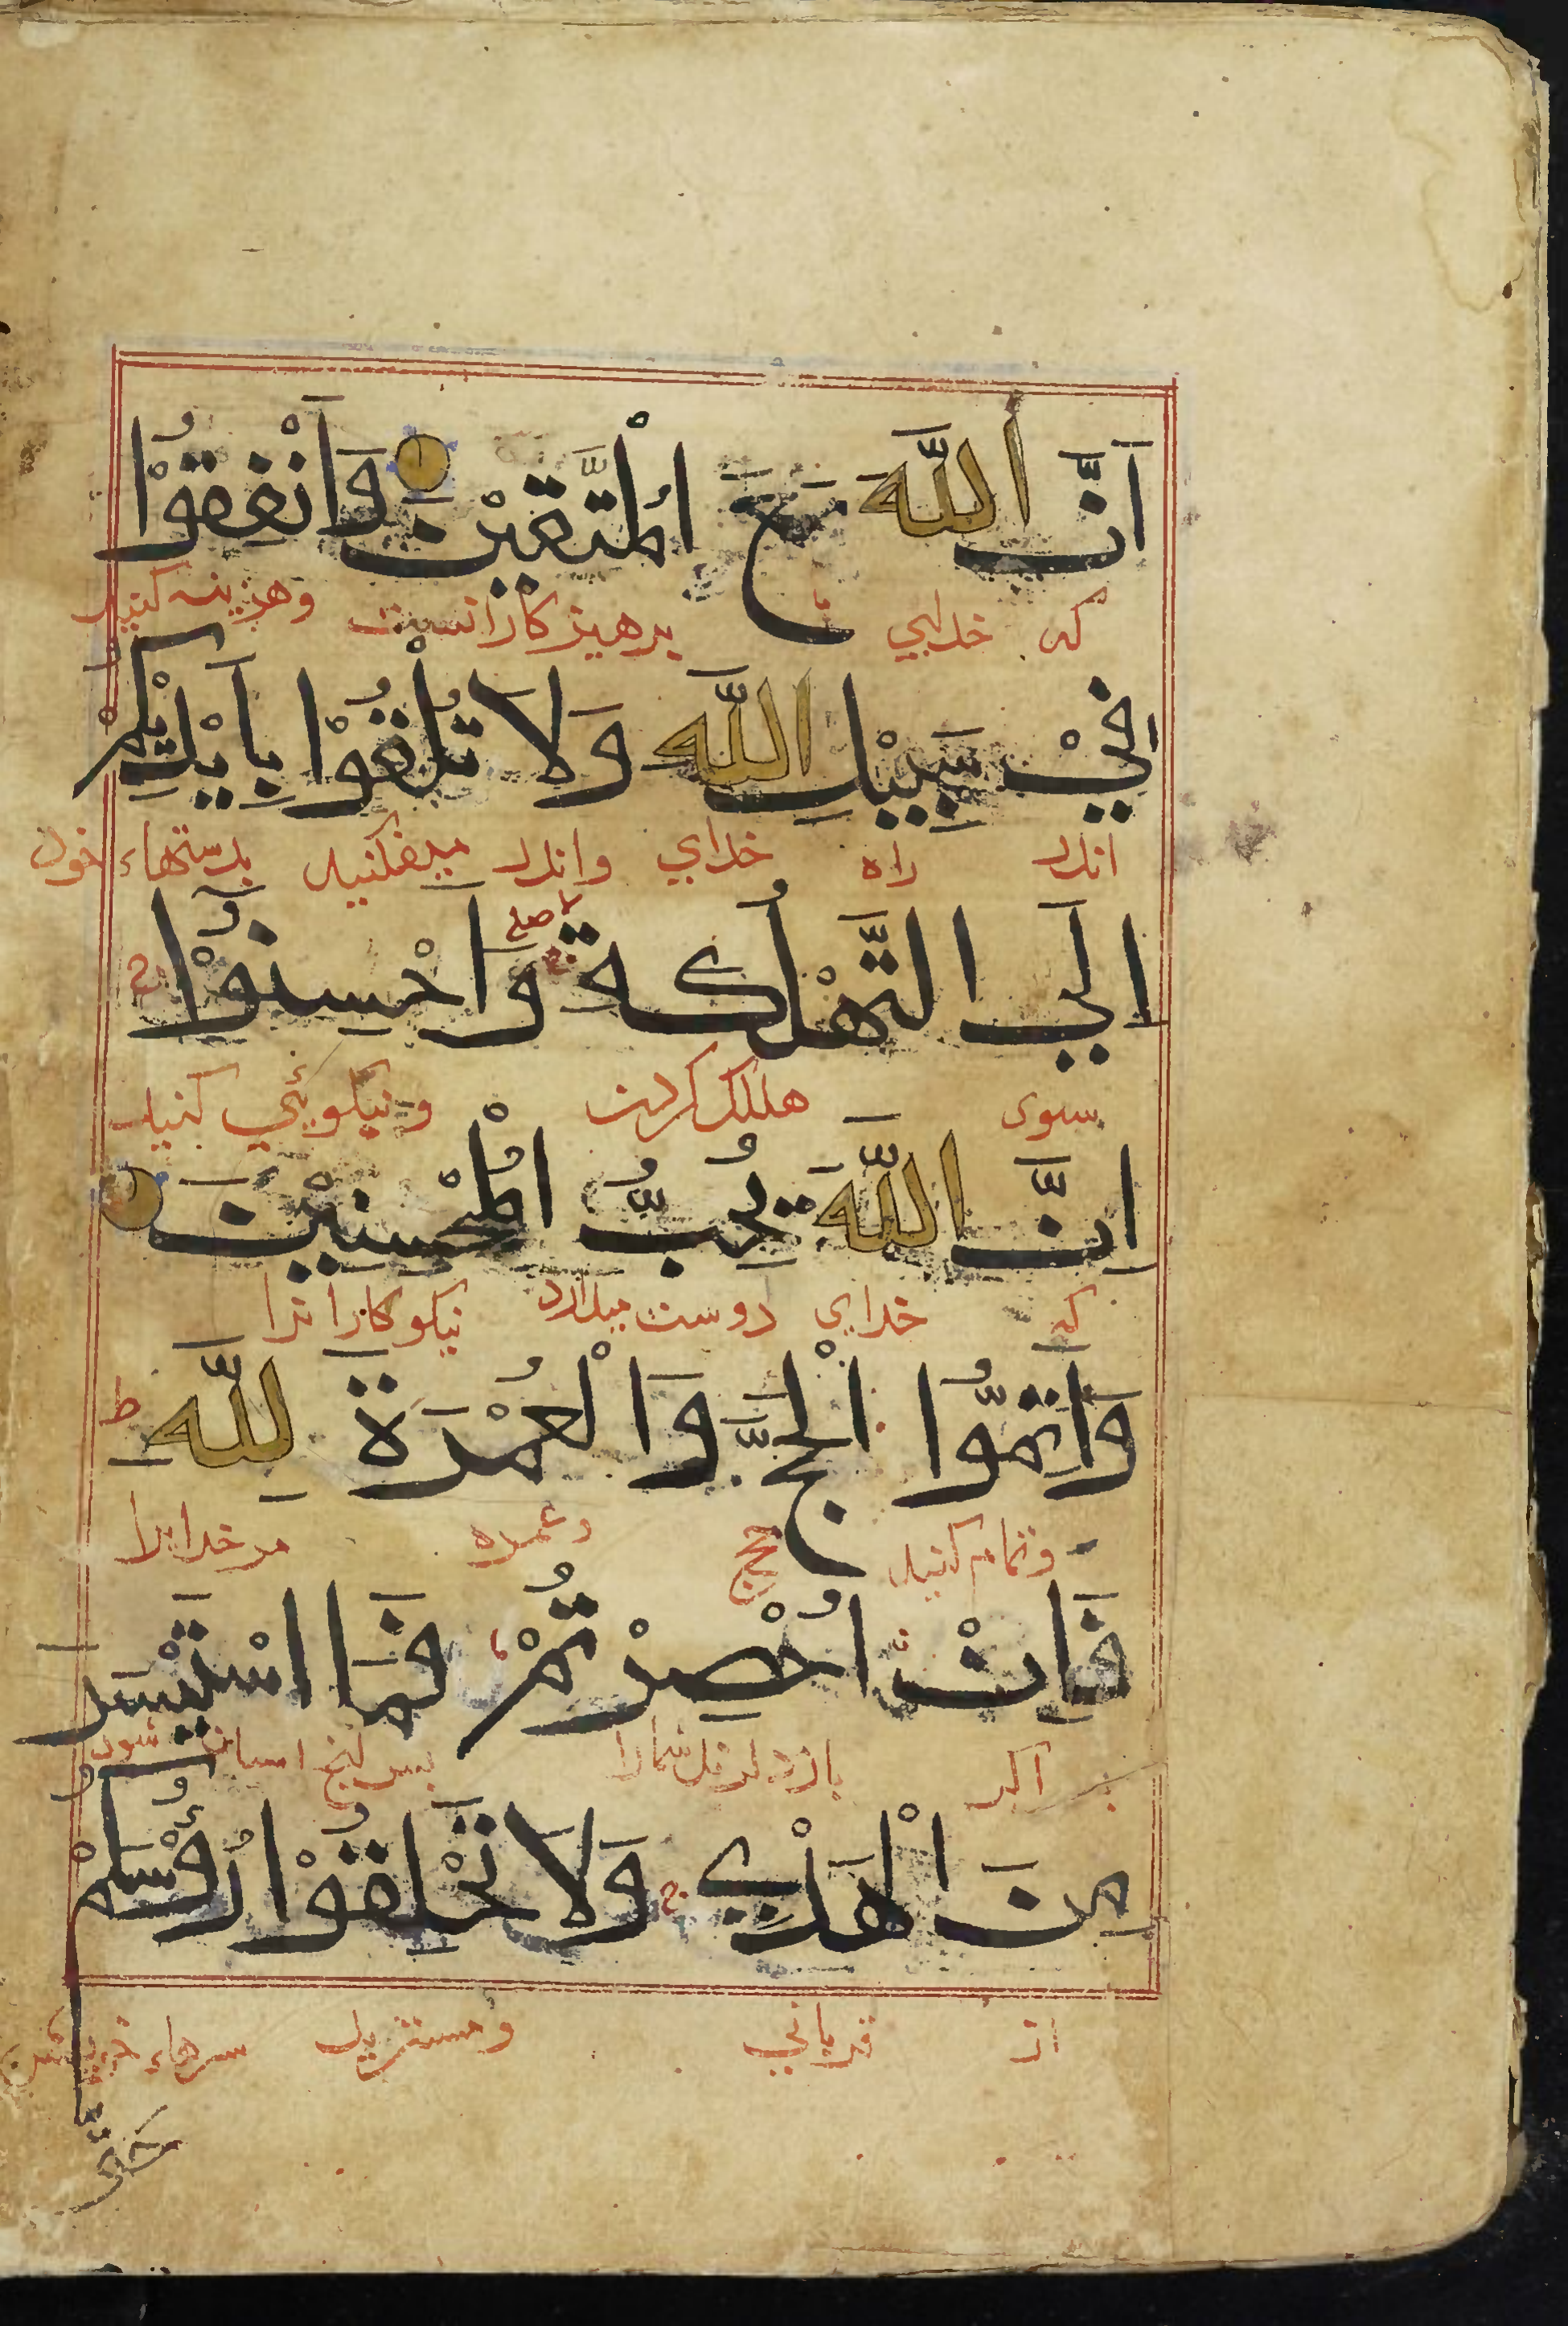 اَنَّ اللّٰهَ مَعَ الْمُتَّقِيْنَ وَاَنْفِقُوْا
که خدایی با پرهیزکارانست وهزینه کنید
فِيْ سَبِيْلِ اللّٰهِ وَلَا تُلْقُوْا بِاَيْدِيْكُمْ
اندر راه خدای واندر میفکنید بدستهاء خود
اِلَي التَّهْلُكَةِ وَاَحْسِنُوْا
سوی هلاک کردن ونیکویی کنید
اِنَّ اللّٰهَ يُحِبُّ الْمُحْسِنِيْنَ
که خدای دوست میدارد نیکوکارانرا
وَاَتِمُّوا الْحَجَّ وَالْعُمْرَةَ لِلّٰهِ ط
وتمام کنید حج وعمره مر خدایرا
فَاِنْ اُحْصِرْتُمْ فَمَا اسْتَيْسَرَ
اگر بازدارند شمارا پس انچ اسان شود
مِنَ الْهَدْيِ ج وَلَا تَحْلِقُوْا رُؤُسَكُمْ
از قربانی ومسترید سرهاء خویشتن
حَتّٰي